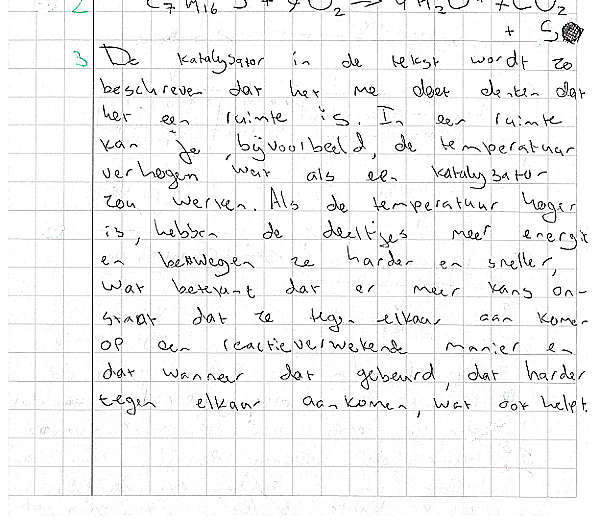 2 C7H16 S + 9 O2 → 4 H2O + 7 CO2
+ S
3 De katalysator in de tekst wordt zo
beschreven dat het me doet denken dat
het een ruimte is. In een ruimte
kan je, bijvoorbeeld, de temperatuur
verhogen wat als een katalysator
zou werken. Als de temperatuur hoger
is, hebben de deeltjes meer energie
en bewegen ze harder en sneller,
wat betekent dat er meer kans on-
staat dat ze tegen elkaar aan komen
op een reactieverwekende manier en
dat wanneer dat gebeurd, dat harder
tegen elkaar aankomen, wat ook helpt.